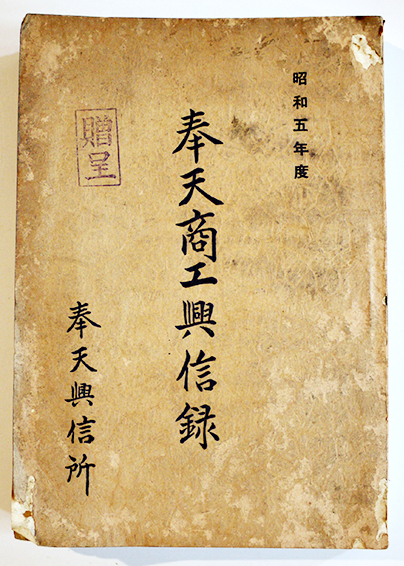 昭和五年度
奉天商工興信録
贈呈
奉天興信所